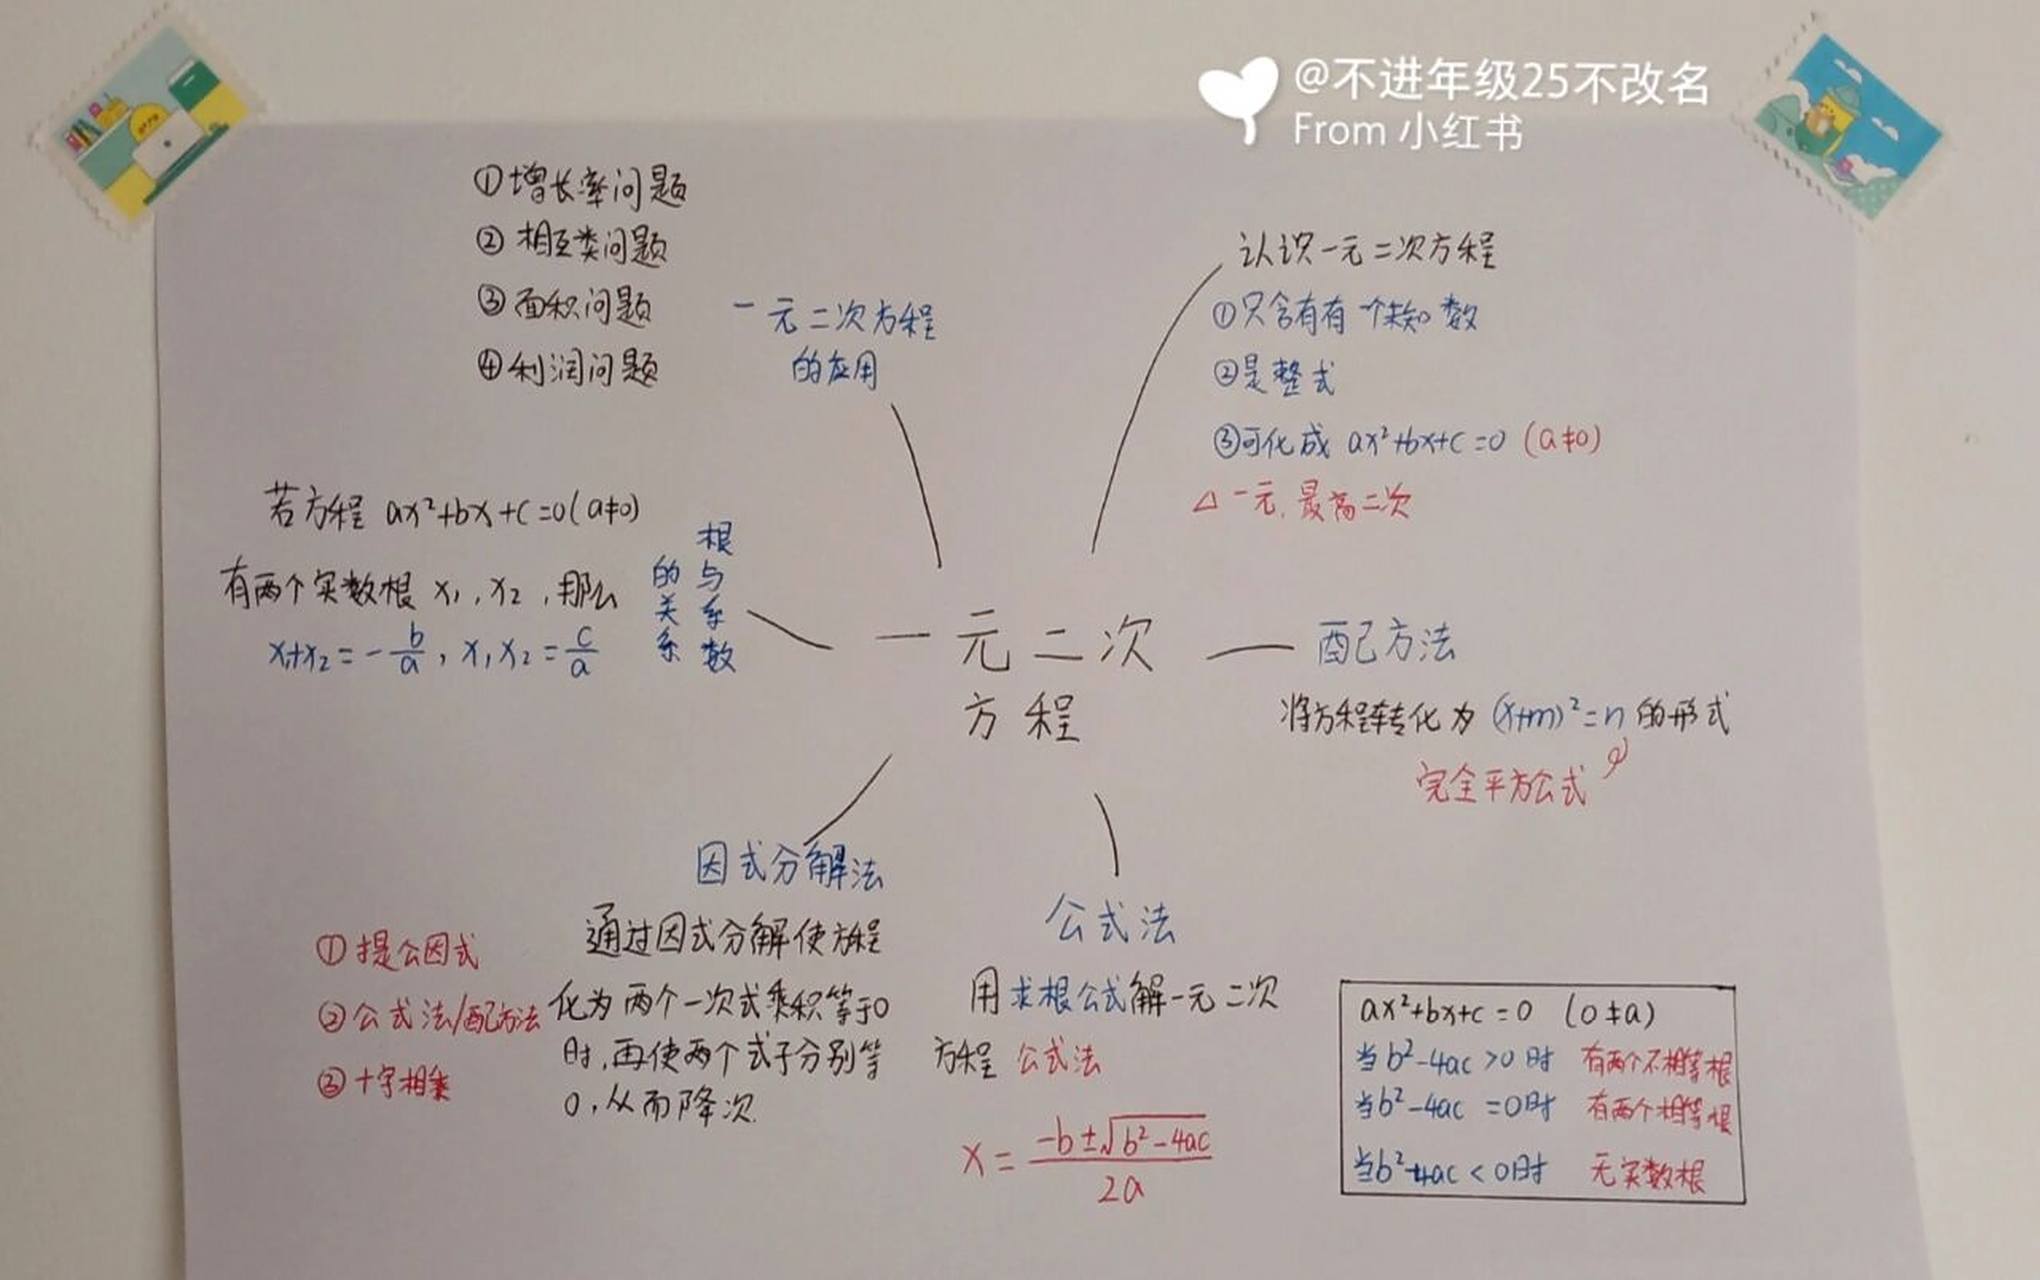 @不进年级25不改名
From 小红书
①增长率问题
②相互类问题
③面积问题
④利润问题
一元二次方程
的应用
认识一元二次方程
①只含有有一个未知数
②是整式
③可化成 ax²+bx+c=0 (a≠0)
△一元,最高二次
若方程 ax²+bx+c=0(a≠0)
有两个实数根 x₁,x₂,那么
x₁+x₂=-b/a,x₁x₂=c/a
根与系数
的关系
一元二次
方程
配方法
将方程转化为(x+m)²=n的形式
完全平方公式
因式分解法
通过因式分解使方程
化为两个一次式乘积等于0
时,再使两个式子分别等
0,从而降次.
①提公因式
②公式法/配方法
③十字相乘
公式法
用求根公式解一元二次
方程 公式法
x=(-b±√(b²-4ac))/2a
ax²+bx+c=0 (0≠a)
当b²-4ac>0时 有两个不相等根
当b²-4ac=0时 有两个相等根
当b²-4ac<0时 无实数根